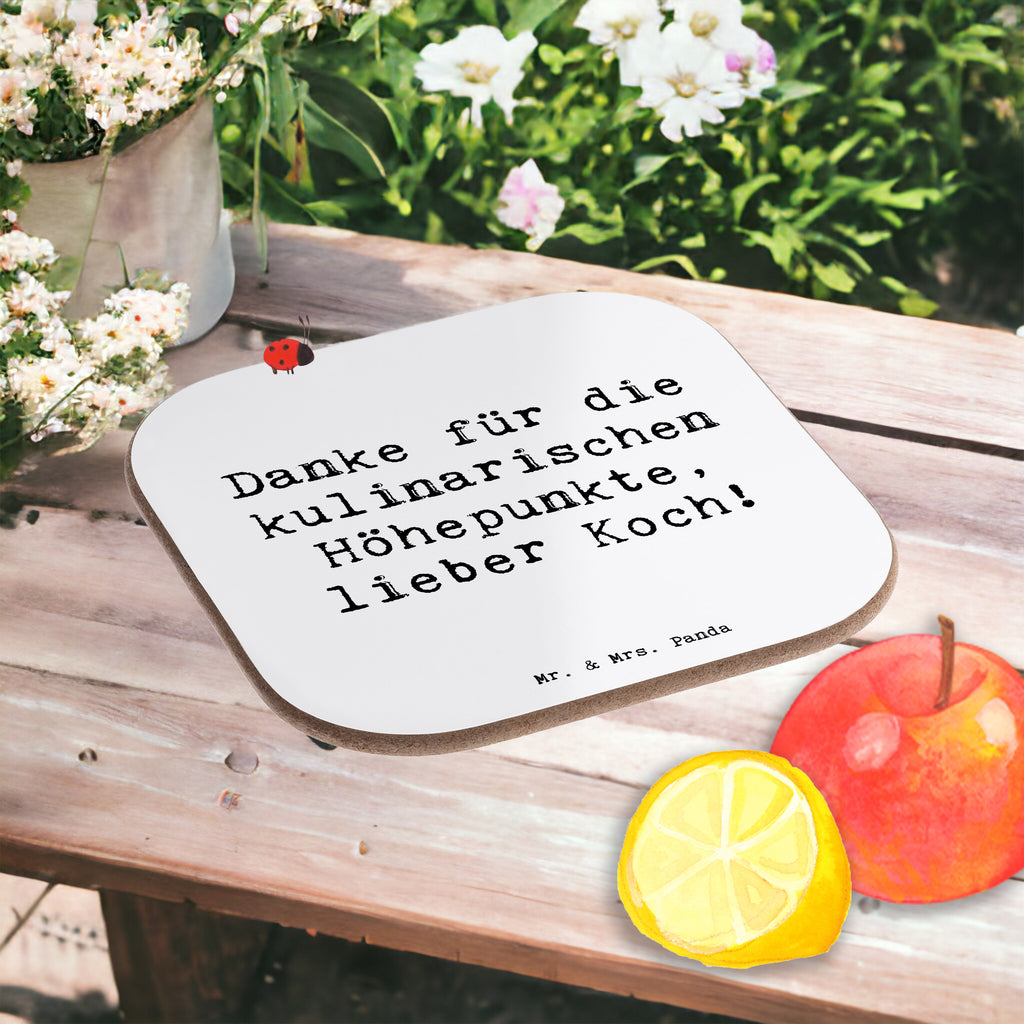 Danke für die
kulinarischen
Höhepunkte,
lieber Koch!
Mr. & Mrs. Panda